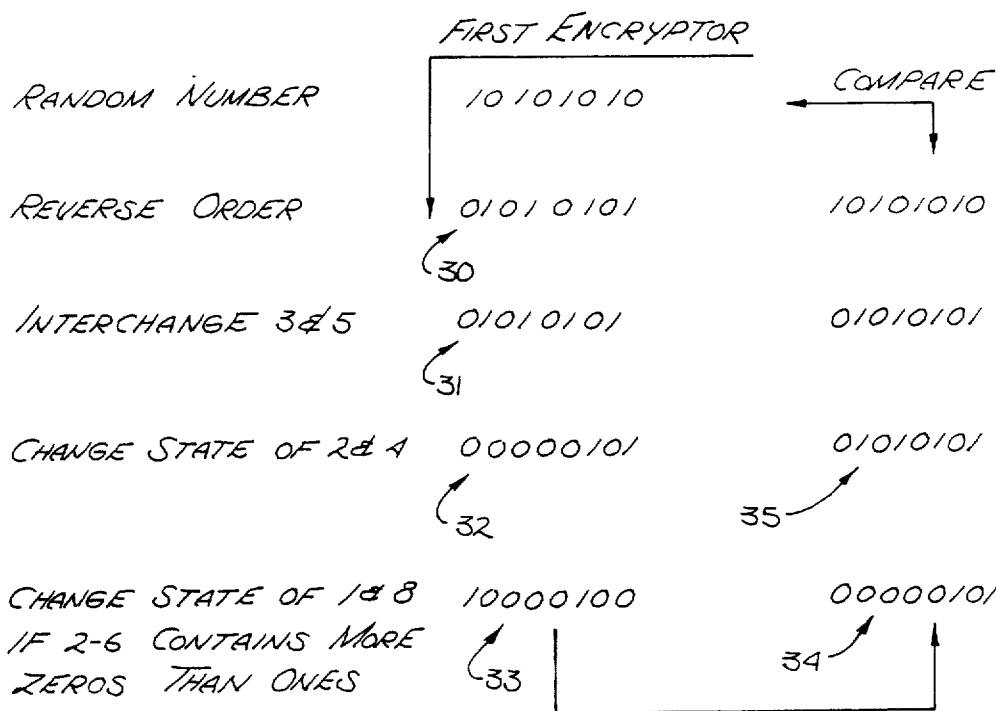 FIRST ENCRYPTOR
RANDOM NUMBER 10101010 COMPARE
REVERSE ORDER 01010101 10101010
30
INTERCHANGE 3&5 01010101 01010101
31
CHANGE STATE OF 2&4 00000101 01010101
32 35
CHANGE STATE OF 1&8 10000100 00000101
IF 2-6 CONTAINS MORE
33 34
ZEROS THAN ONES